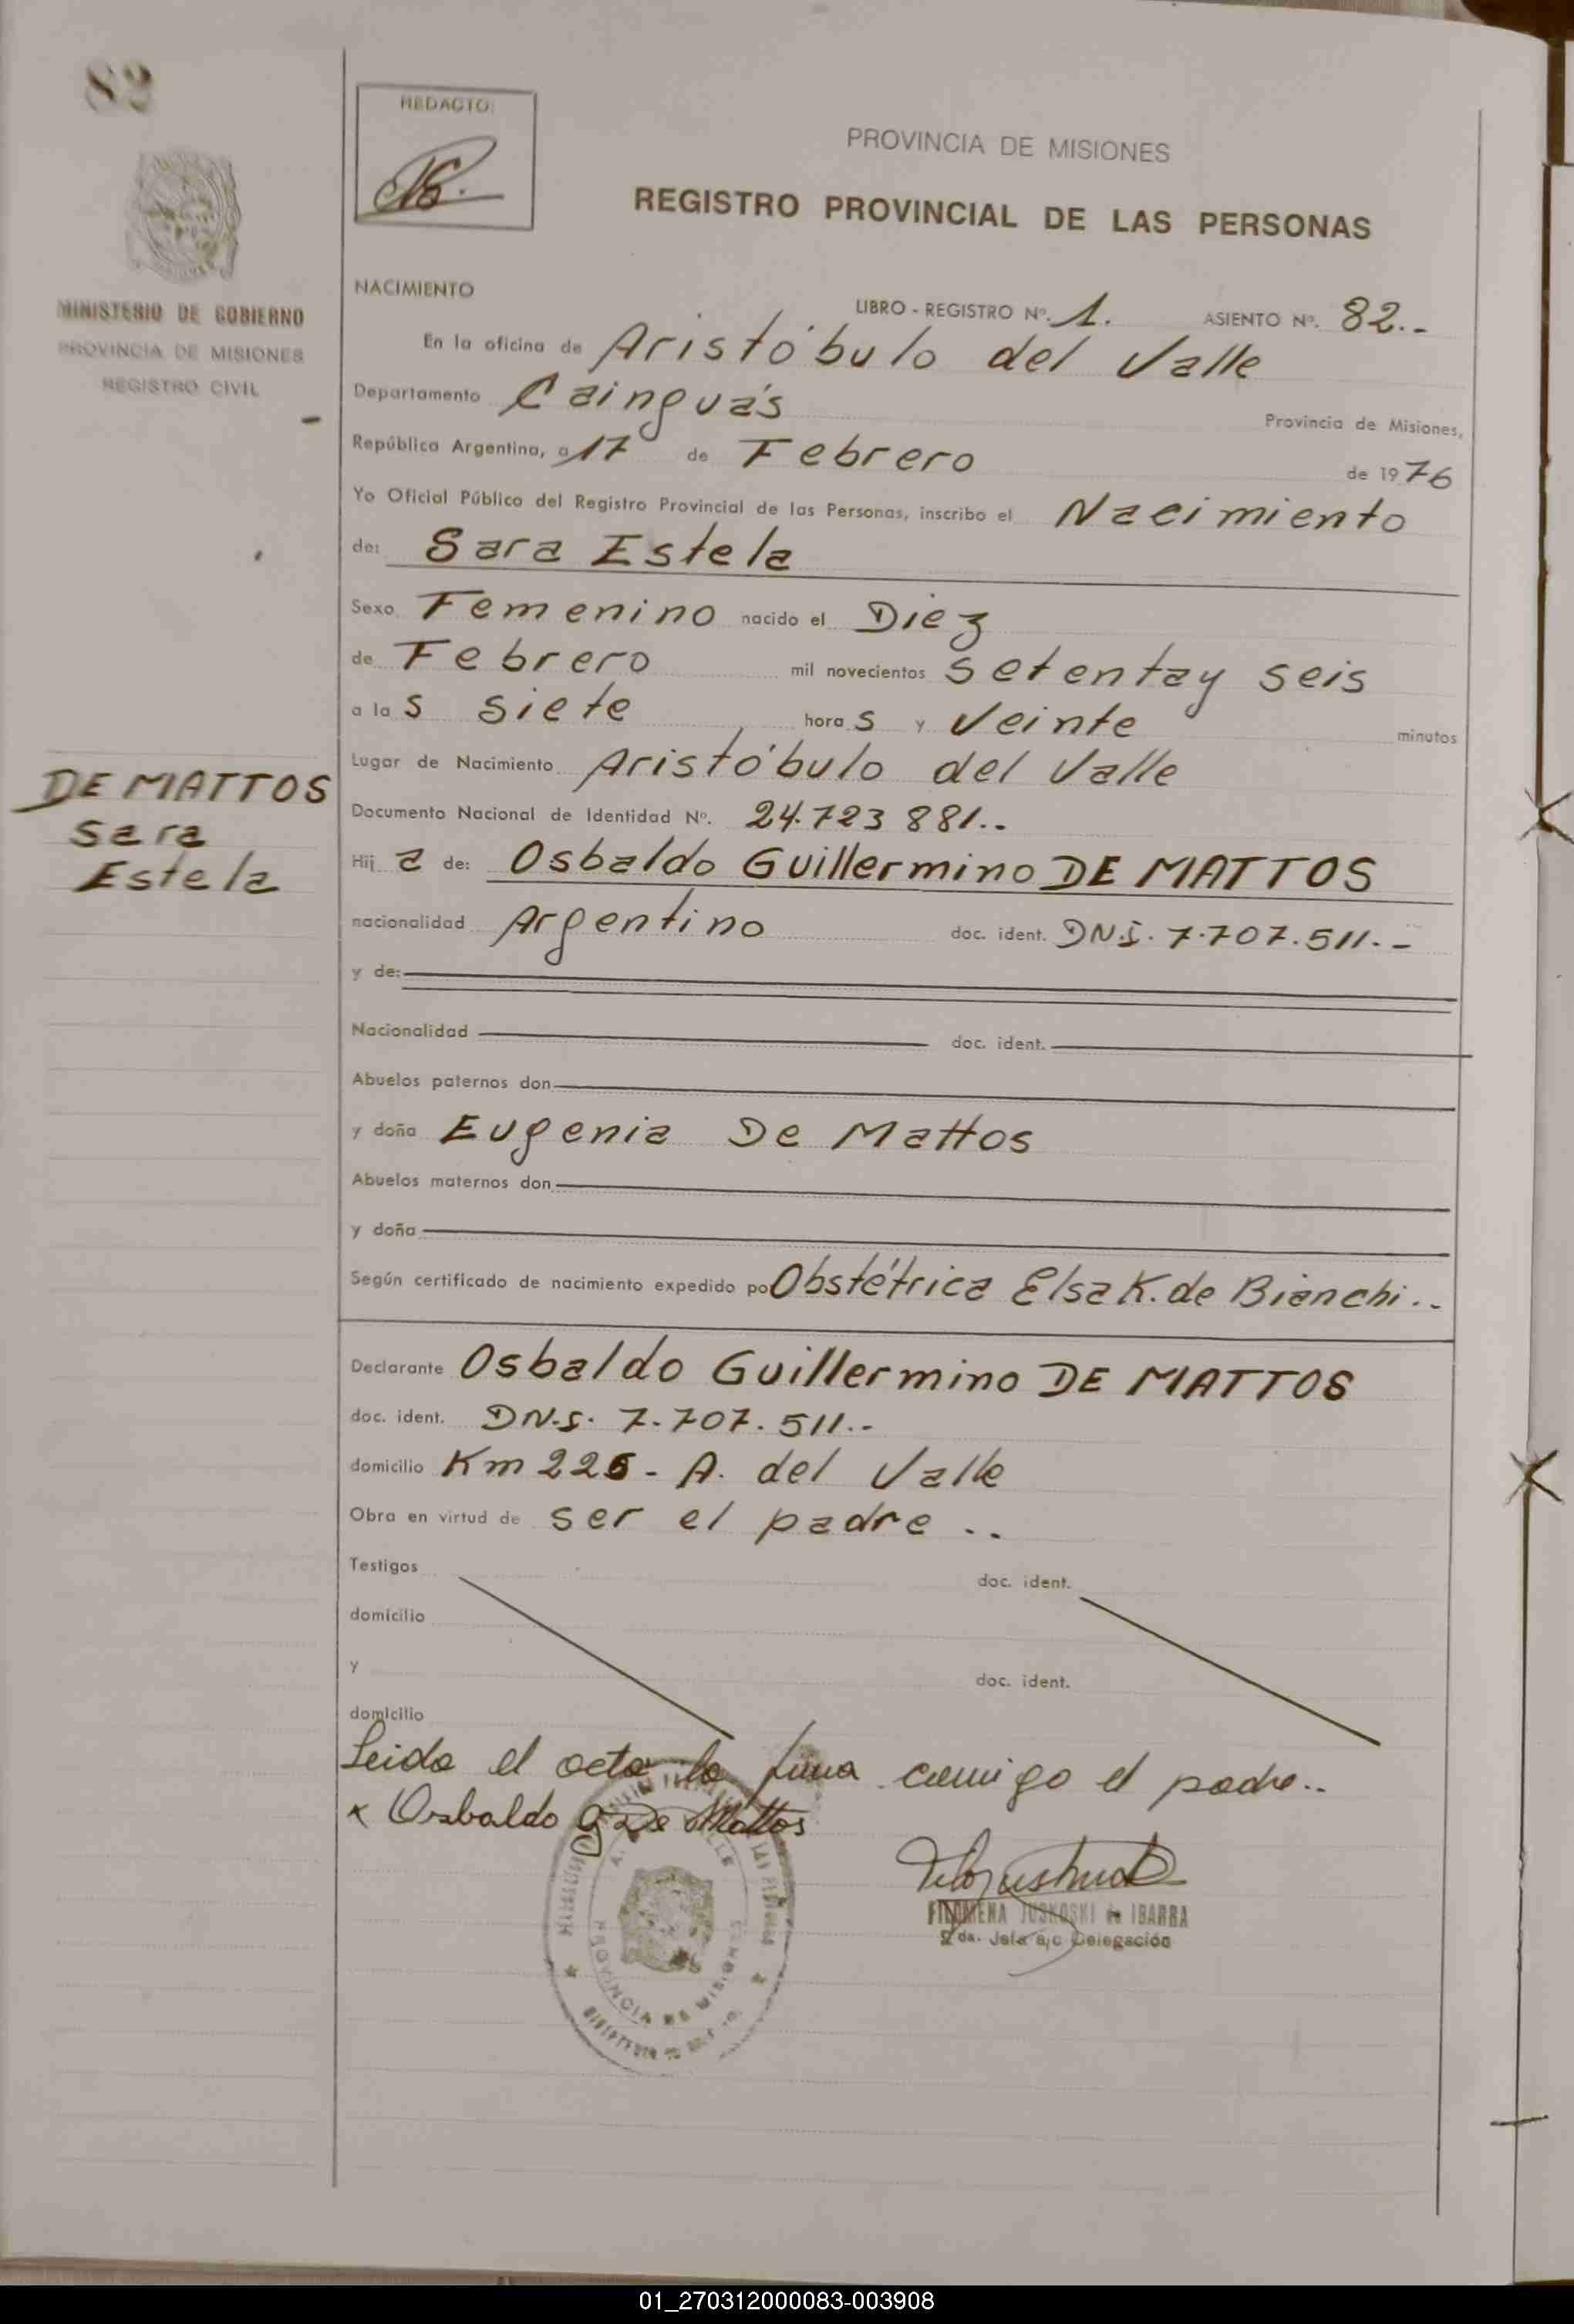 82
REDACTO:
PROVINCIA DE MISIONES
REGISTRO PROVINCIAL DE LAS PERSONAS
MINISTERIO DE GOBIERNO
PROVINCIA DE MISIONES
REGISTRO CIVIL
NACIMIENTO
LIBRO - REGISTRO Nº. 1. ASIENTO Nº. 82.-
En la oficina de Aristóbulo del Valle
Departamento Cainguás Provincia de Misiones,
República Argentina, a 17 de Febrero de 1976
Yo Oficial Público del Registro Provincial de las Personas, inscribo el Nacimiento
de: Sara Estela
Sexo Femenino nacido el Diez
de Febrero mil novecientos setenta y seis
a las siete horas y veinte minutos
Lugar de Nacimiento Aristóbulo del Valle
DE MATTOS
Sara
Estela
Documento Nacional de Identidad Nº. 24.723 881..
Hija de: Osbaldo Guillermino DE MATTOS
nacionalidad Argentino doc. ident. DN.I. 7.707.511.-
y de:
Nacionalidad doc. ident.
Abuelos paternos don
y doña Eugenia De Mattos
Abuelos maternos don
y doña
Según certificado de nacimiento expedido po Obstétrica Elsa K. de Bianchi..
Declarante Osbaldo Guillermino DE MATTOS
doc. ident. DN.I. 7.707.511..
domicilio Km 226 - A. del Valle
Obra en virtud de ser el padre ..
Testigos doc. ident.
domicilio
y doc. ident.
domicilio
Leida el acta la firma comigo el padre..
x Osbaldo G De Mattos
FILOMENA JUSKOSKI de IBARRA
2da. Jefa a/c Delegación
PROVINCIA DE MISIONES
01_270312000083-003908